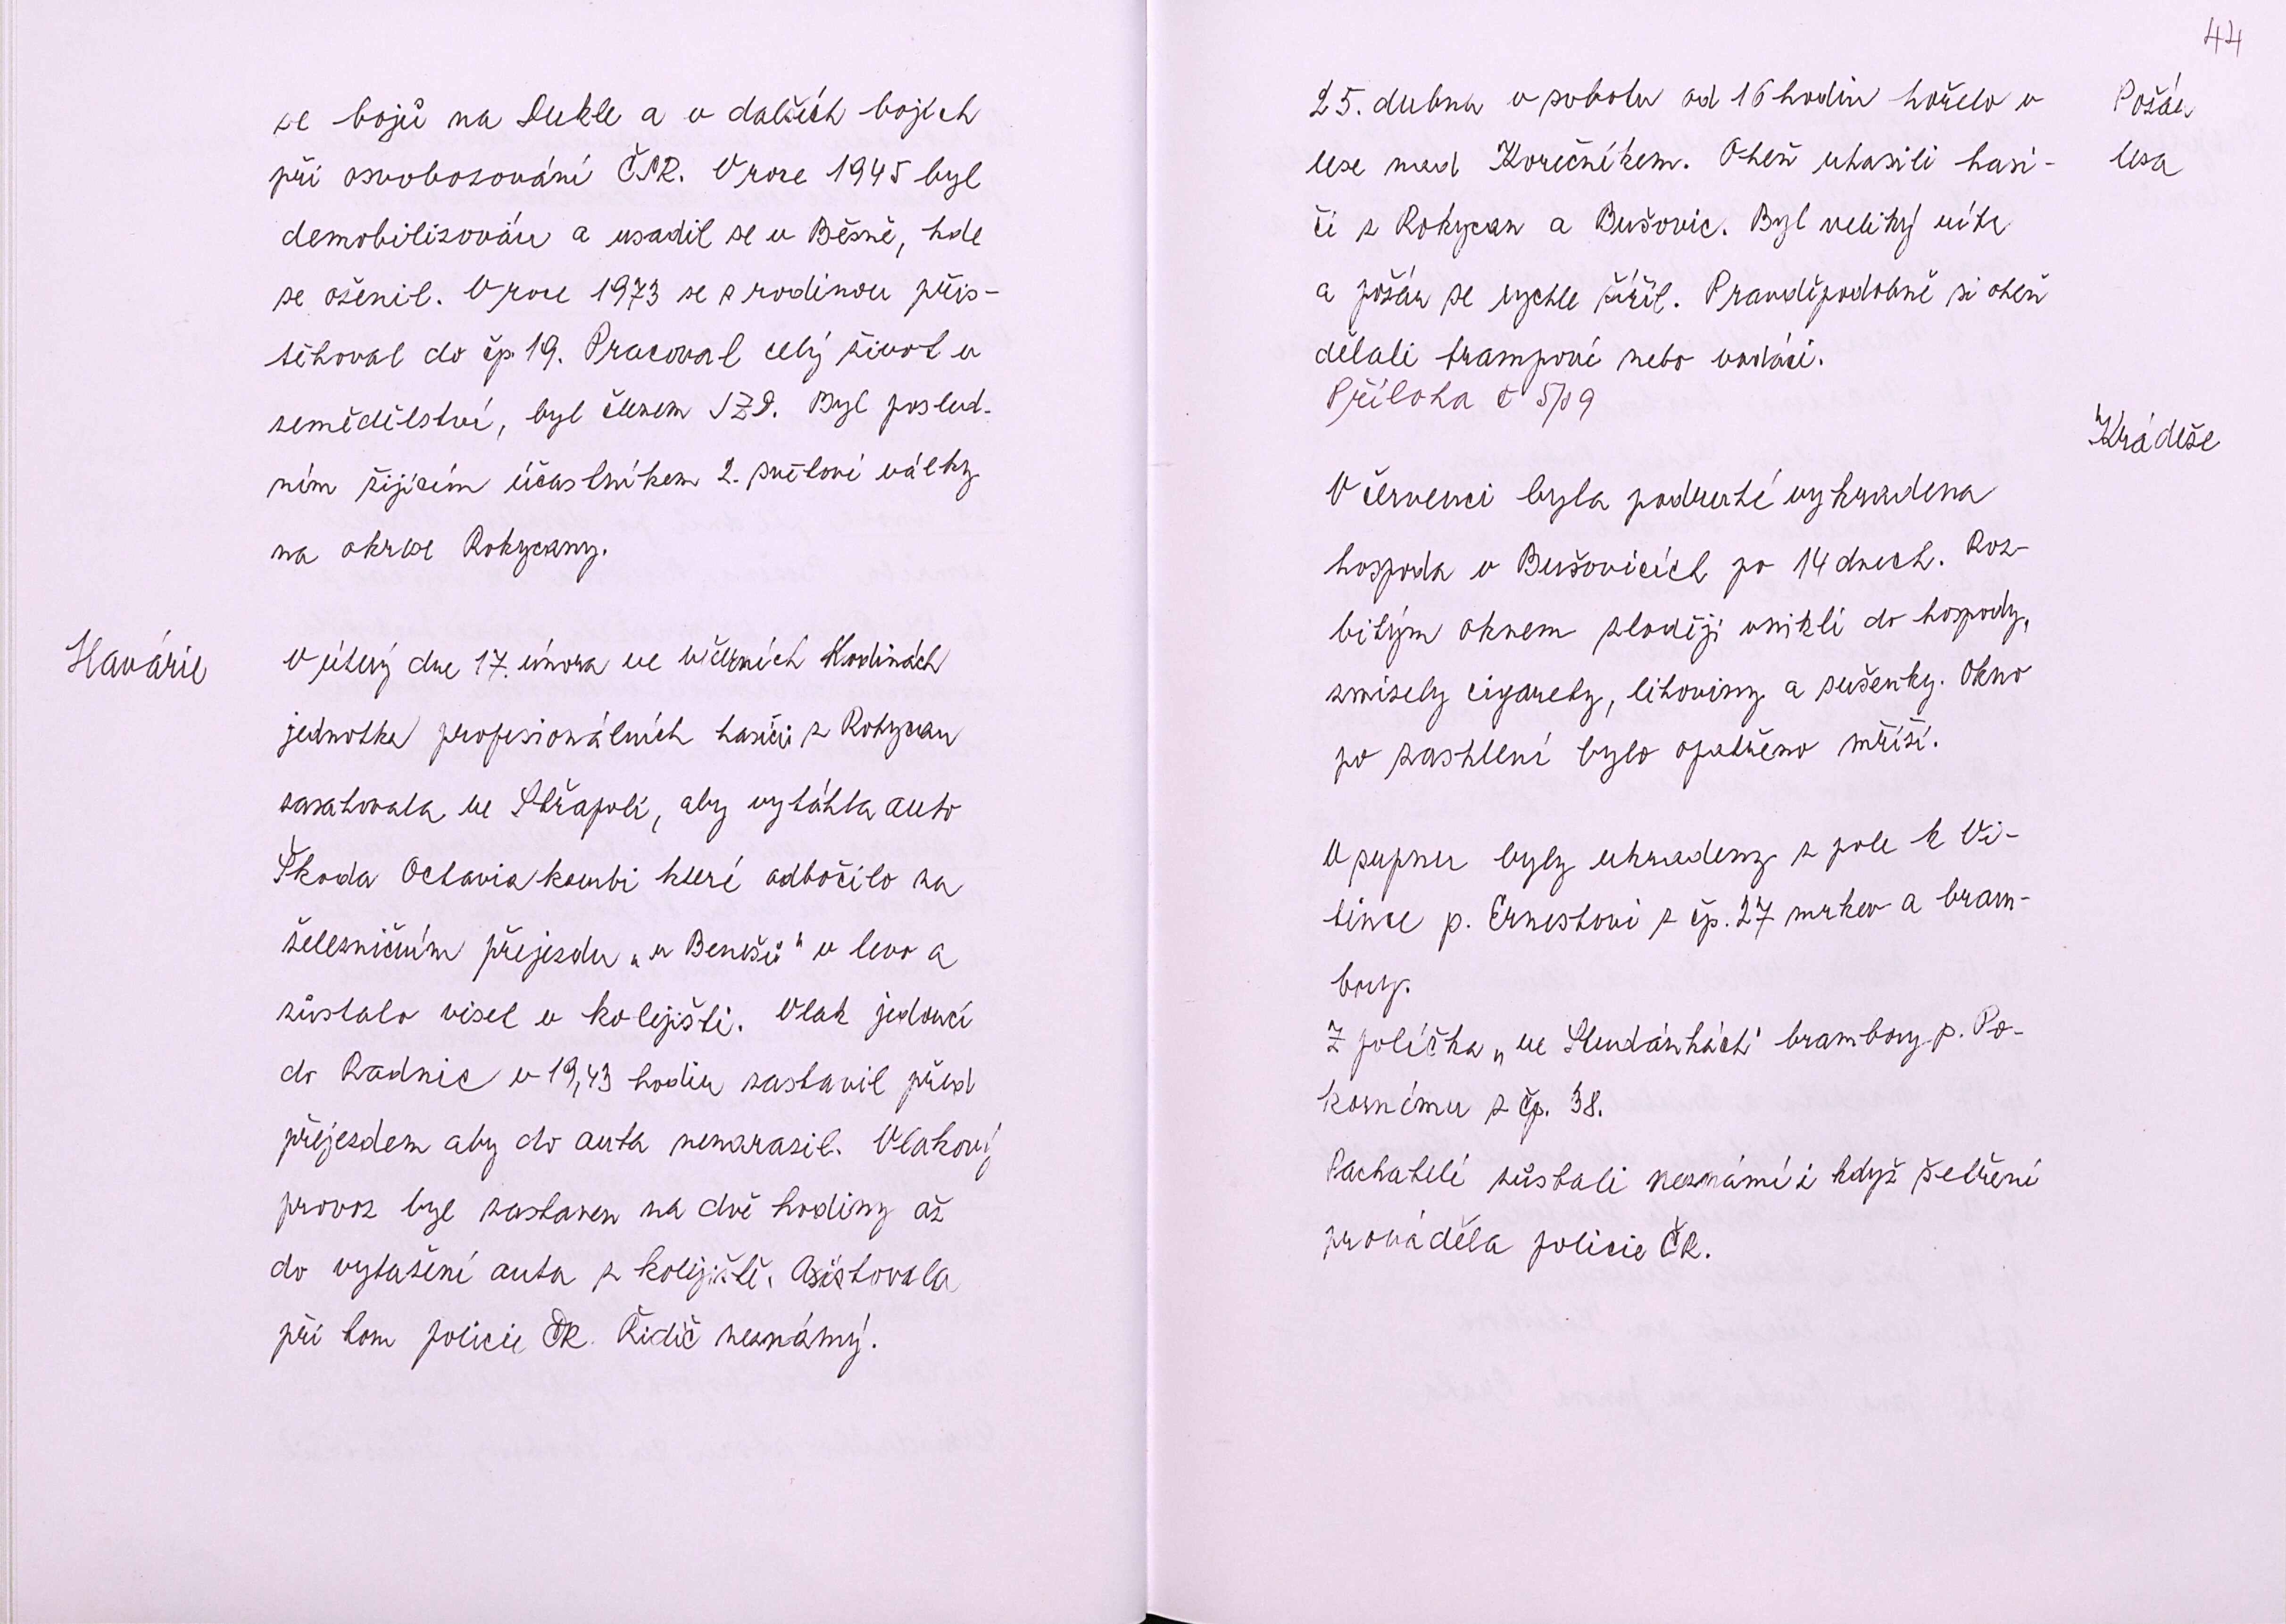 se bojů na Dukle a v dalších bojích
při osvobozování ČSR. V roce 1945 byl
demobilizován a usadil se v Běsně, kde
se oženil. V roce 1973 se s rodinou přis-
těhoval do čp. 19. Pracoval celý život v
zemědělství, byl členem JZD. Byl posled-
ním žijícím účastníkem 2. světové války
na okrese Rokycany.
Havárie
V úterý dne 17. února ve večerních hodinách
jednotka profesionálních hasičů z Rokycan
zasahovala ve Střapolí, aby vytáhla auto
Škoda Octavia kombi které odbočilo za
železničním přejezdu „u Benešů" v levo a
zůstalo viset v kolejišti. Vlak jedoucí
do Radnic v 19,43 hodin zastavil před
přejezdem aby do auta nenarazil. Vlakový
provoz byl zastaven na dvě hodiny až
do vytažení auta z kolejiště. Asistovala
při tom policie ČR. Řidič neznámý.
44
Požár
lesa
25. dubna v sobotu od 16 hodin hořelo v
lese nad Korečníkem. Oheň uhasili hasi-
či z Rokycan a Bušovic. Byl veliký vítr
a požár se rychle šířil. Pravděpodobně si oheň
dělali trampové nebo vodáci.
Příloha č 5/09
Krádeže
V červenci byla podruhé vykradena
hospoda v Bušovicích po 14 dnech. Roz-
bitým oknem zloději vnikli do hospody,
zmizely cigarety, lihoviny a sušenky. Okno
po zasklení bylo opatřeno mříží.
V srpnu byly ukradeny z pole k Vi-
tince p. Ernestovi z čp. 27 mrkev a bram-
bory.
Z políčka „ve Studánkách" brambory p. Po-
kornému z čp. 38.
Pachatelé zůstali neznámí i když šetření
prováděla policie ČR.